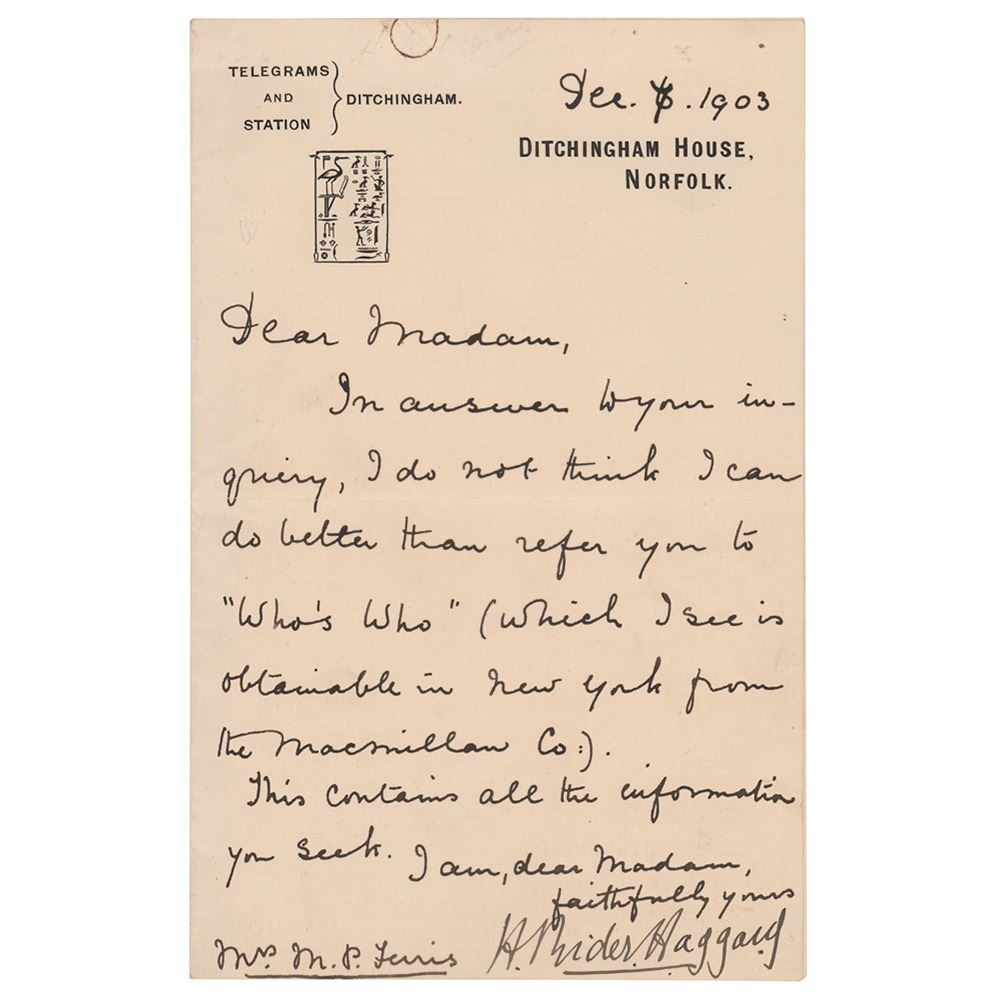 TELEGRAMS
AND
STATION
DITCHINGHAM.
Dec. . 1903
DITCHINGHAM HOUSE,
NORFOLK.
Dear Madam,
In answer to your in-
quiery, I do not think I can
do better than refer you to
"Who's Who" (which I see is
obtainable in New York from
the Macmillan Co:).
This contains all the information
you seek. I am, dear Madam,
faithfully yours
H. Rider Haggard
Mrs M. P. Ferris